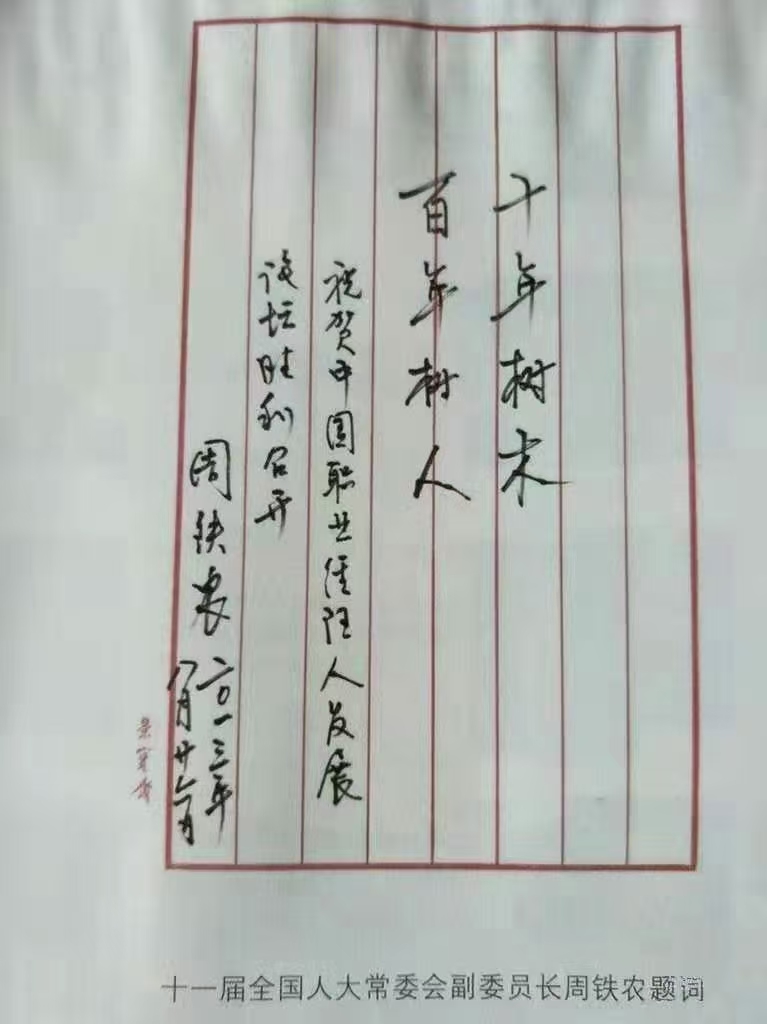 十年树木
百年树人
祝贺中国职业经理人发展
论坛胜利召开
周铁农
二〇一三年
八月廿六日
荣宝斋
十一届全国人大常委会副委员长周铁农题词